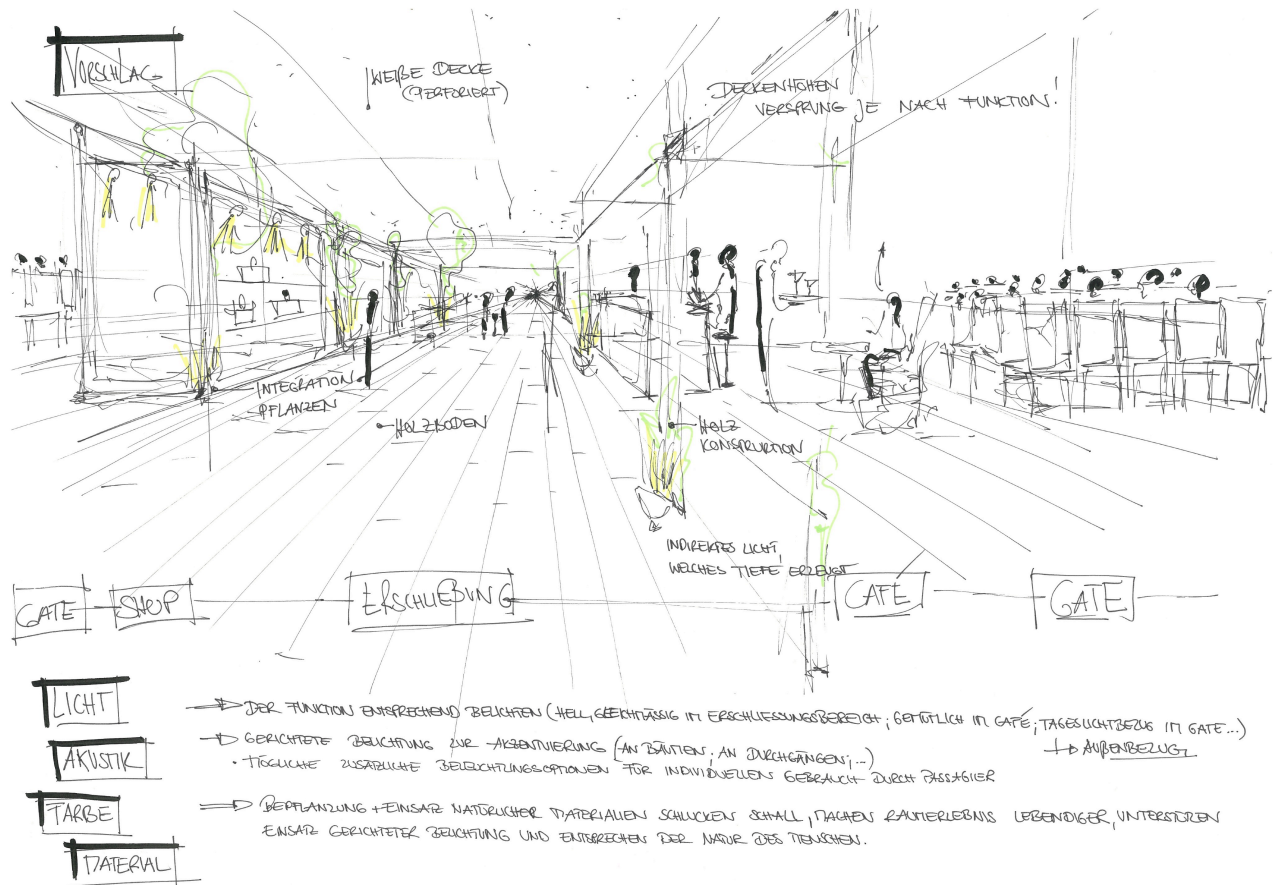 VORSCHLAG
WEIßE DECKE
(PERFORIERT)
DECKENHÖHEN
VERSPRUNG JE NACH FUNKTION!
INTEGRATION
PFLANZEN
HOLZBODEN
HOLZ
KONSTRUKTION
INDIREKTES LICHT,
WELCHES TIEFE ERZEUGT
GATE
SHOP
ERSCHLIEßUNG
CAFÉ
GATE
LICHT
DER FUNKTION ENTSPRECHEND BELICHTEN (HELL, GLEICHMÄSSIG IM ERSCHLIESSUNGSBEREICH; GEMÜTLICH IM CAFÉ; TAGESLICHTBEZUG IM GATE...)
AUßENBEZUG
AKUSTIK
GERICHTETE BELICHTUNG ZUR AKZENTUIERUNG (AN BÄUMEN; AN DURCHGÄNGEN;...)
• MÖGLICHE ZUSÄTZLICHE BELEUCHTUNGSOPTIONEN FÜR INDIVIDUELLEN GEBRAUCH DURCH PASSAGIER
FARBE
BEPFLANZUNG + EINSATZ NATÜRLICHER MATERIALIEN SCHLUCKEN SCHALL, MACHEN RAUMERLEBNIS LEBENDIGER, UNTERSTÜTZEN
EINSATZ GERICHTETER BELICHTUNG UND ENTSPRECHEN DER NATUR DES MENSCHEN.
MATERIAL